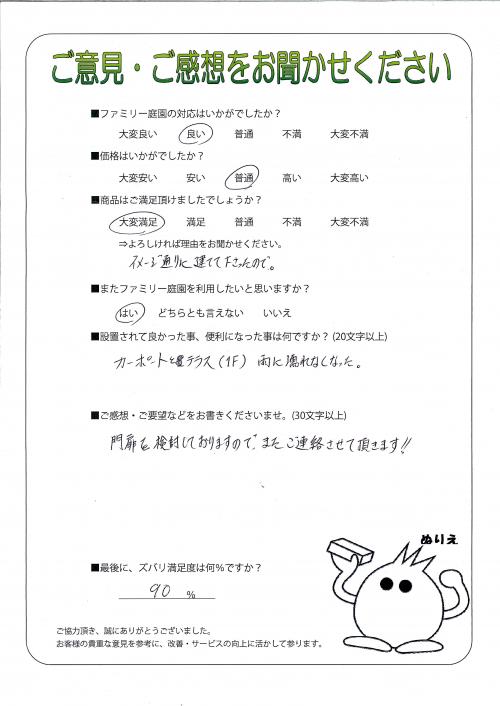 ご意見・ご感想をお聞かせください
■ファミリー庭園の対応はいかがでしたか？
大変良い　良い　普通　不満　大変不満
■価格はいかがでしたか？
大変安い　安い　普通　高い　大変高い
■商品はご満足頂けましたでしょうか？
大変満足　満足　普通　不満　大変不満
⇒よろしければ理由をお聞かせください。
イメージ通りに建てて下さったので。
■またファミリー庭園を利用したいと思いますか？
はい　どちらとも言えない　いいえ
■設置されて良かった事、便利になった事は何ですか？(20文字以上)
カーポートと テラス(1F) 雨に濡れなくなった。
■ご感想・ご要望などをお書きくださいませ。(30文字以上)
門扉を検討しておりますので、またご連絡させて頂きます!!
ぬりえ
■最後に、ズバリ満足度は何％ですか？
90 ％
ご協力頂き、誠にありがとうございました。
お客様の貴重な意見を参考に、改善・サービスの向上に活かして参ります。